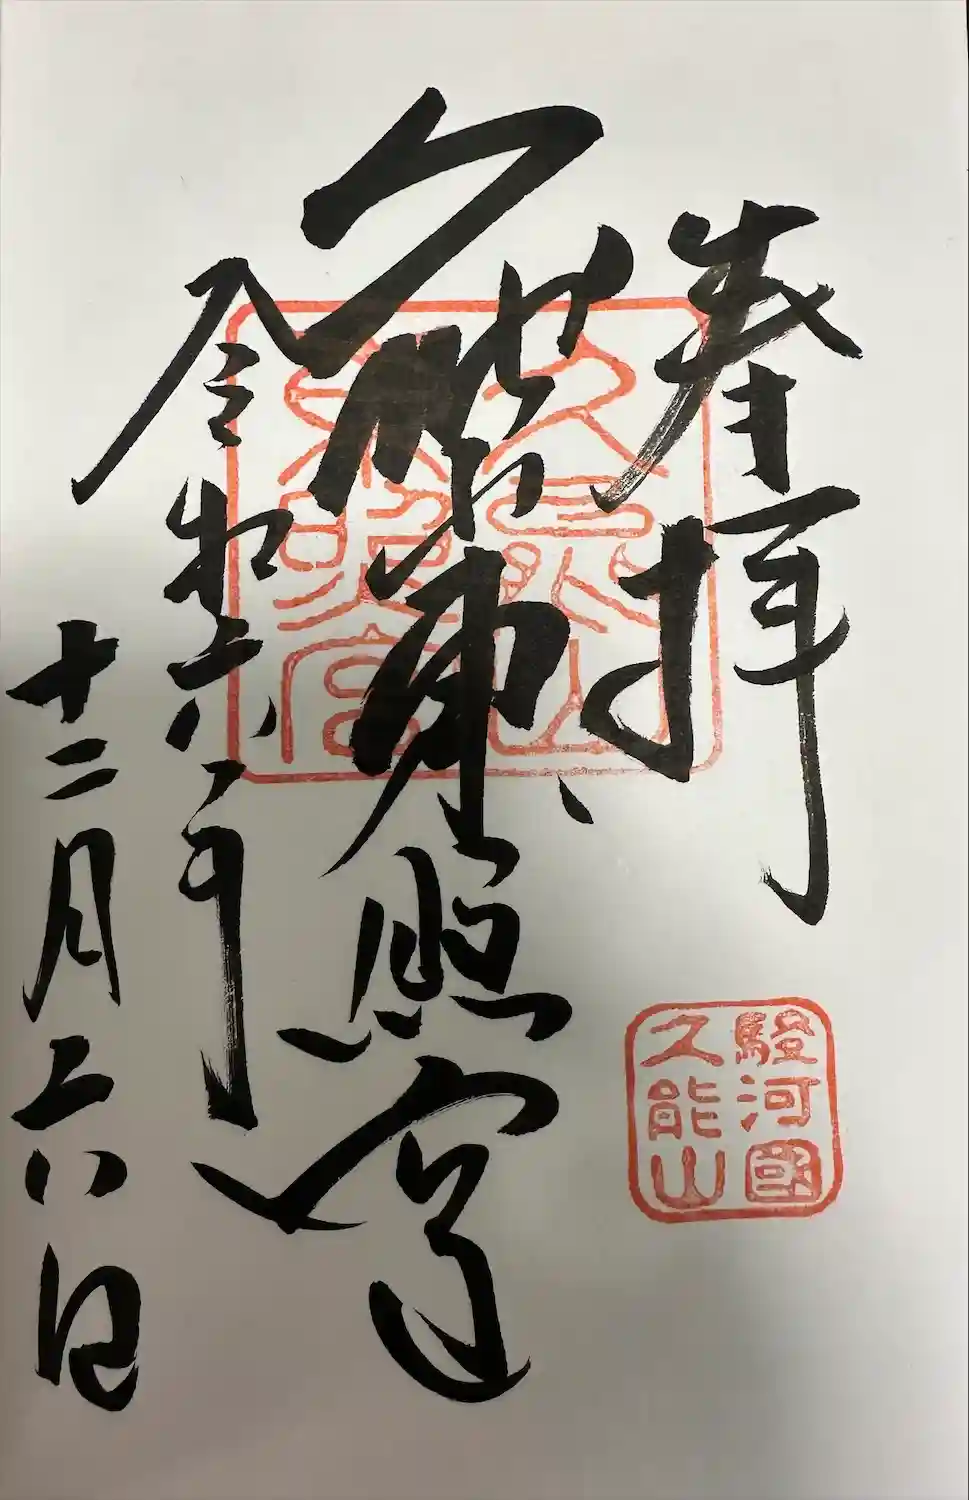 奉拝
久能山東照宮
令和六年
十二月六日
久能山
東照宮
駿河國
久能山